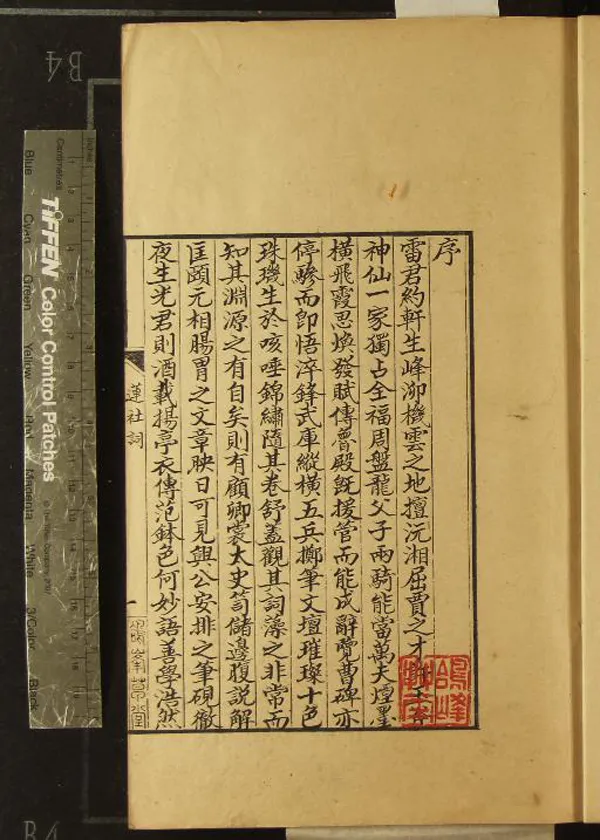 序
雷君約軒生峰泖機雲之地擅沅湘屈賈之才
神仙一家獨占全福周盤龍父子兩騎能當萬夫煙墨
橫飛霞思煥發賦傳魯殿旣援管而能成辭覺曹碑亦
停驂而卽悟淬鋒武庫縱橫五兵擲筆文壇璀璨十色
珠璣生於咳唾錦繡隨其卷舒蓋觀其詞藻之非常而
知其淵源之有自矣則有顧卿裳太史笥儲邊腹說解
匡頤元相腸胃之文章映日可見與公安排之筆硯徹
夜生光君則酒載揚亭衣傳范鉢色何妙語善學浩然
蓮社詞
一
TIFFEN Color Control Patches
Blue
Cyan
Green
Yellow
Red
Magenta
White
3/Color
Black
Centimetres
B4
B4